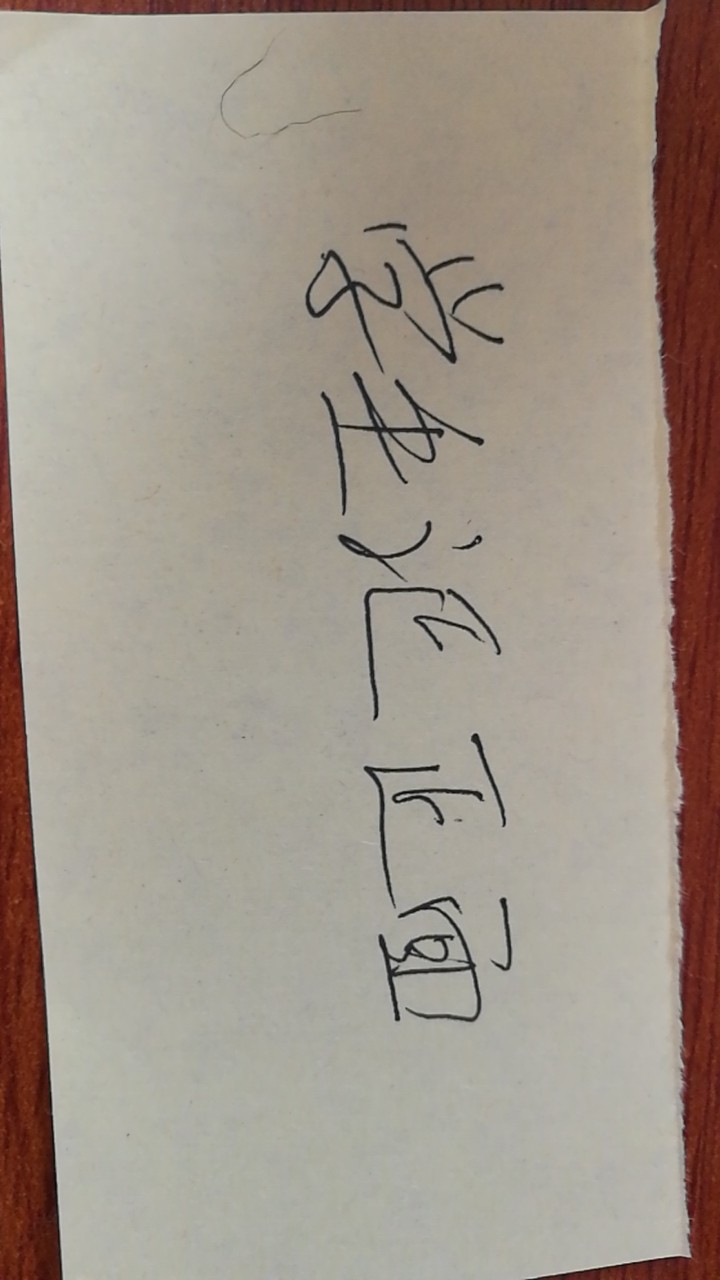 学生证正面